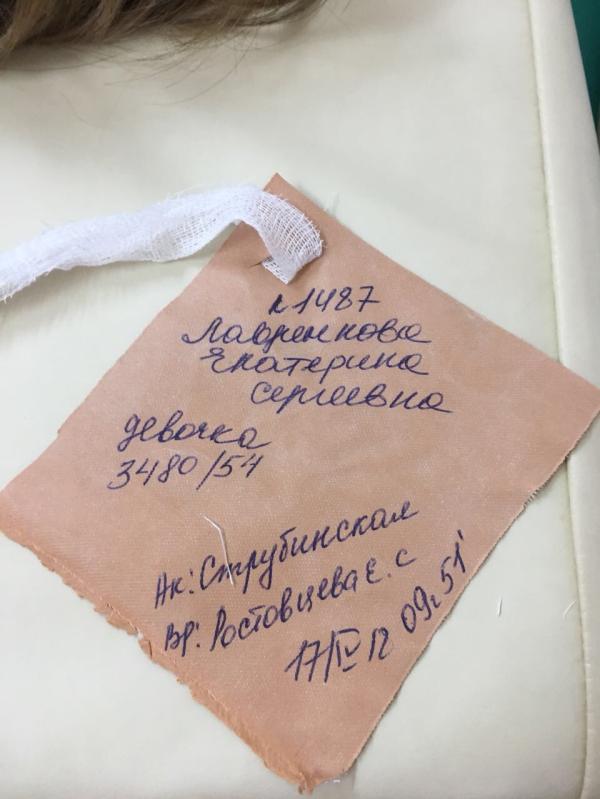 н1487
Лавренкова
Екатерина
Сергеевна
девочка
3480/54
Ак: Струбинская
Вр: Ростовцева Е. С
17/IV 12 09ч 51'